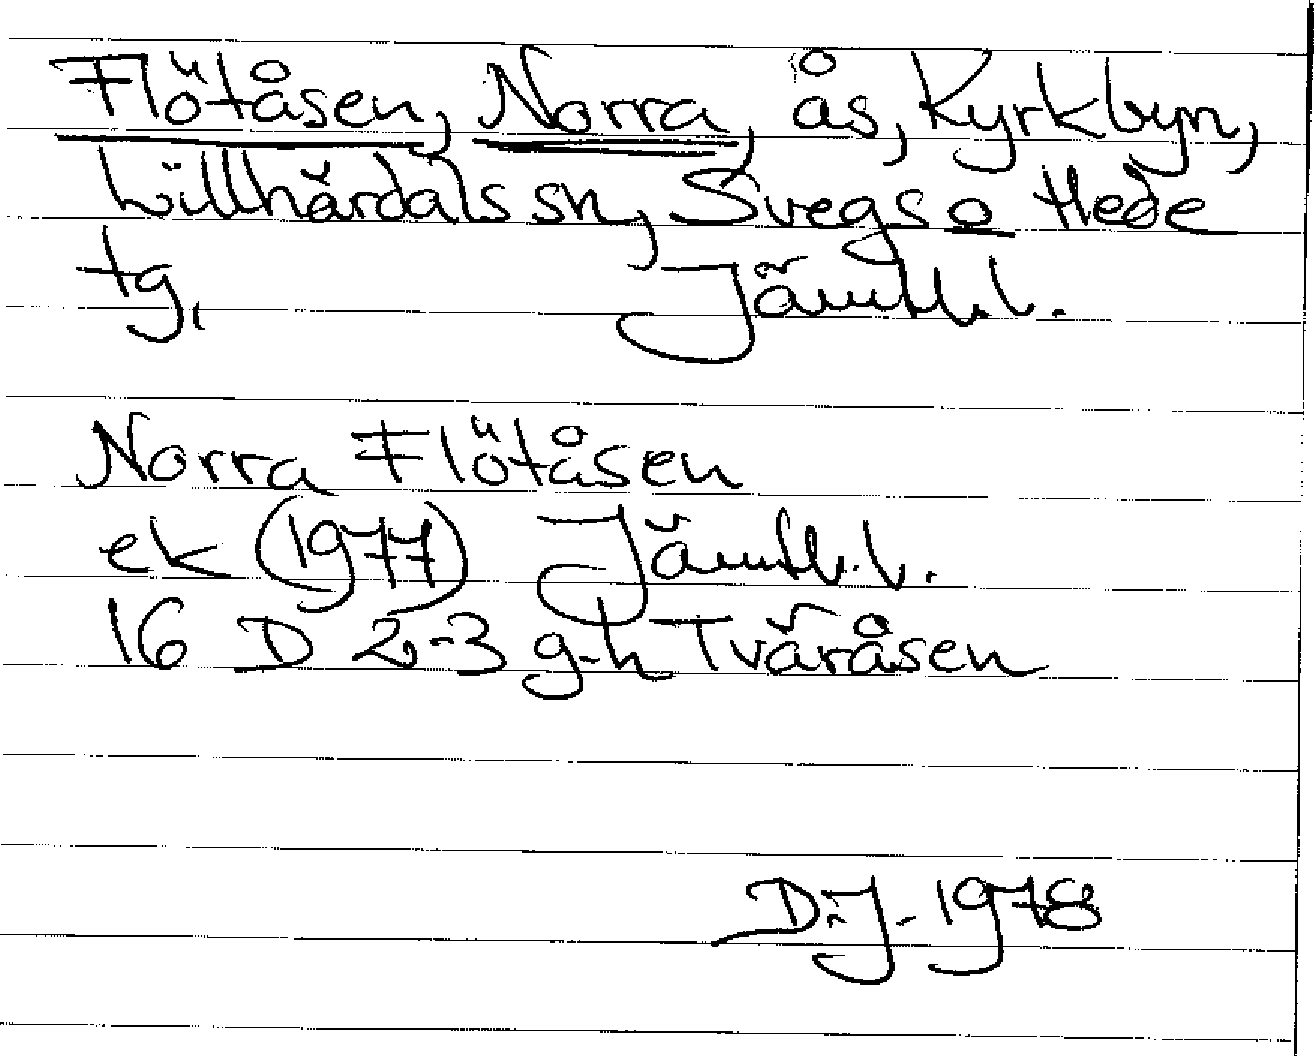 Flötåsen, Norra, ås, Kyrkbyn,
Lillhärdals sn, Svegs o Hede
tg, Jämtl. l.
Norra Flötåsen
ek (1977) Jämtl. l.
16 D 2-3 g-h Tväråsen
D.J. 1978